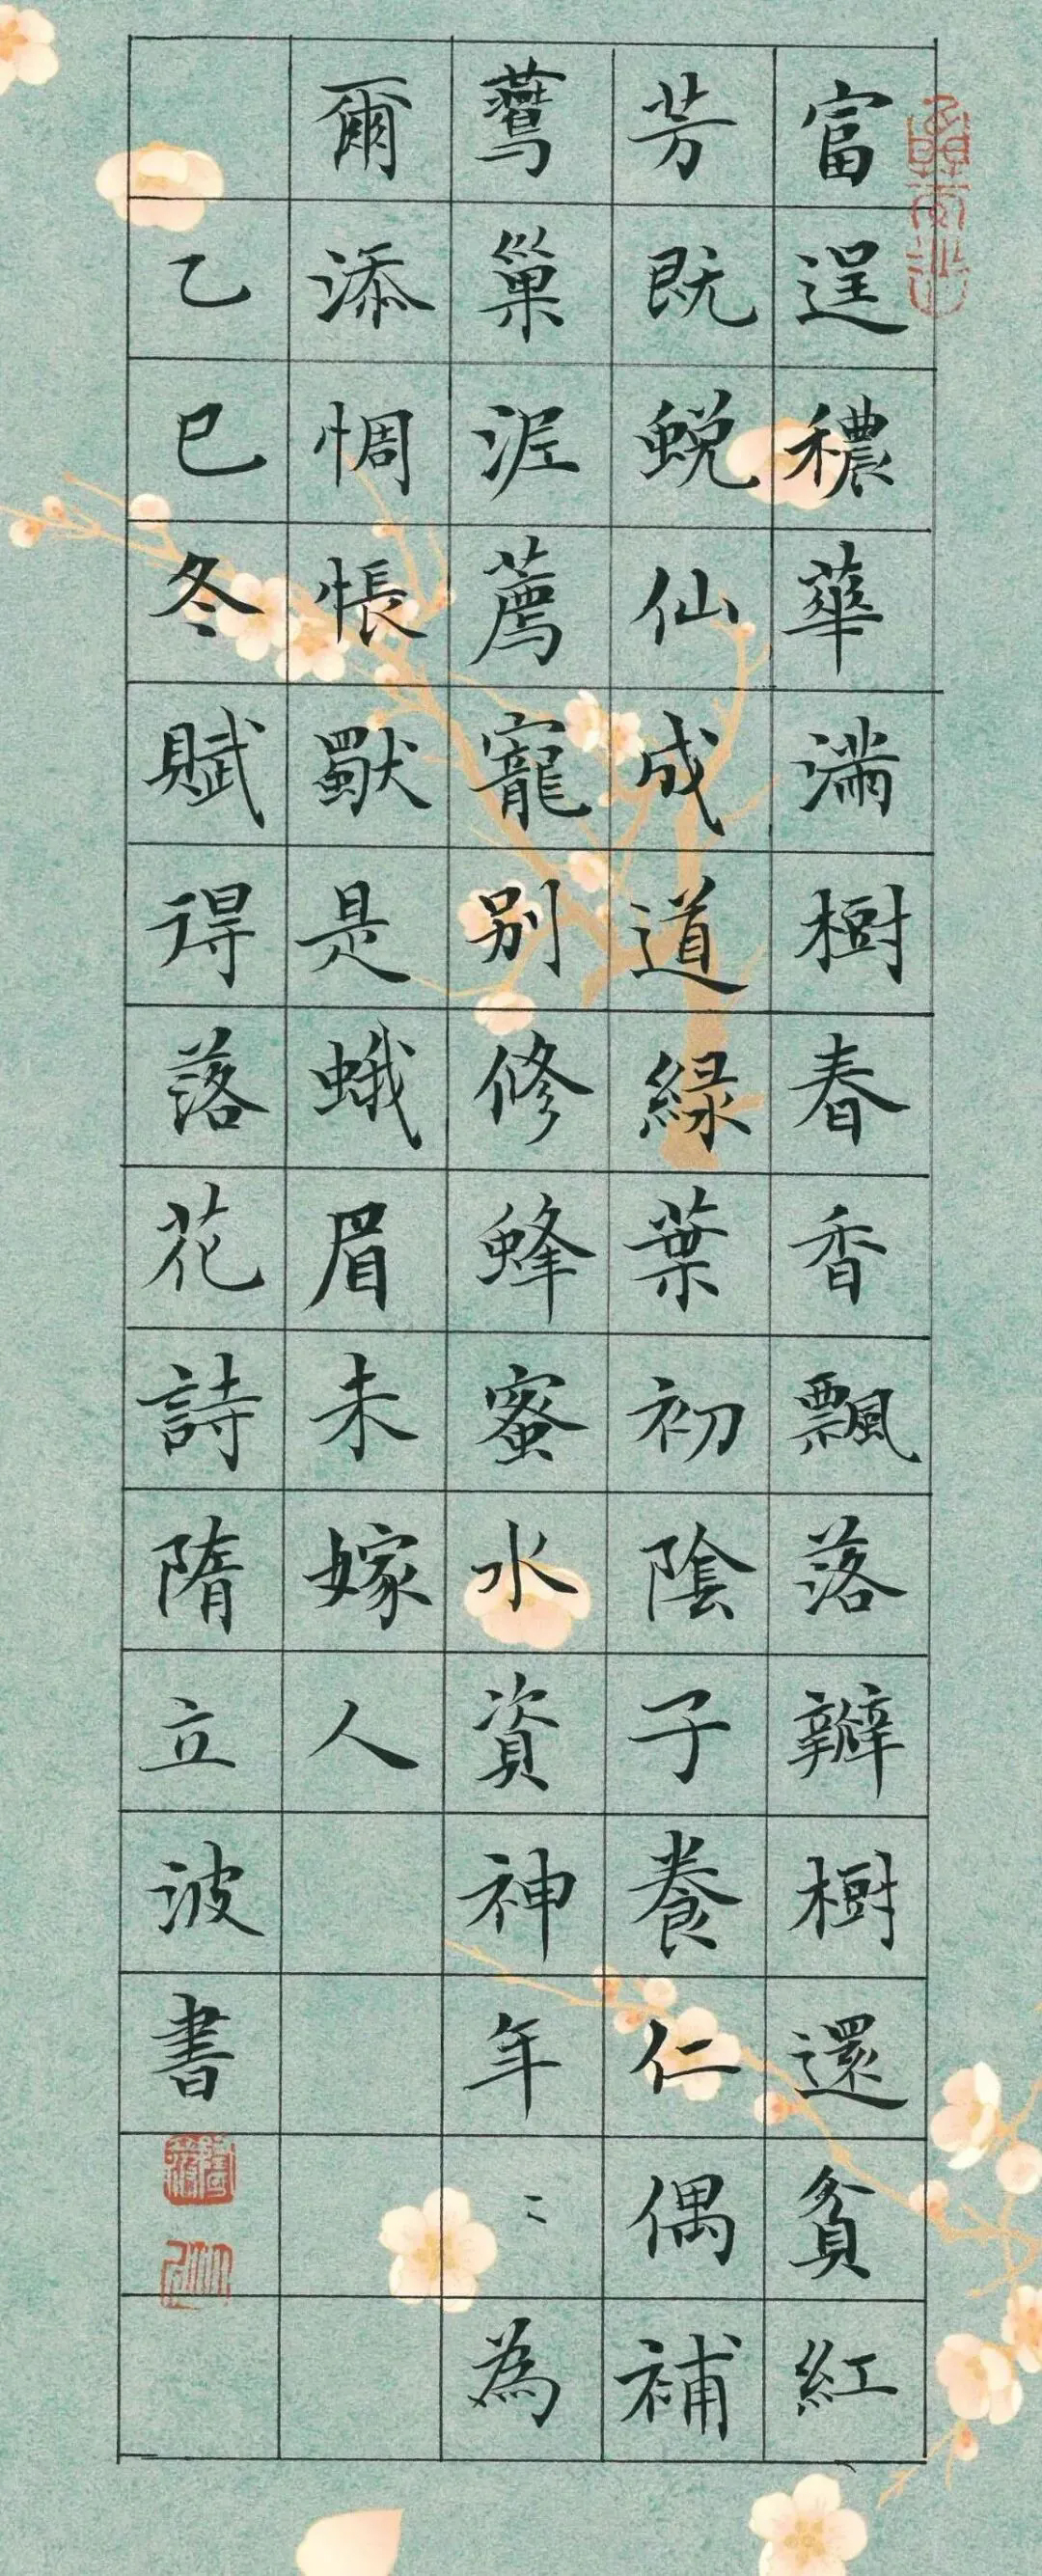 富逞穠華滿樹春香飄落瓣樹還貧紅
芳既蛻仙成道綠葉初陰子養仁偶補
鶯巢泥薦寵別修蜂蜜水資神年〻為
爾添惆悵獸是蛾眉未嫁人
乙巳冬賦得落花詩隋立波書